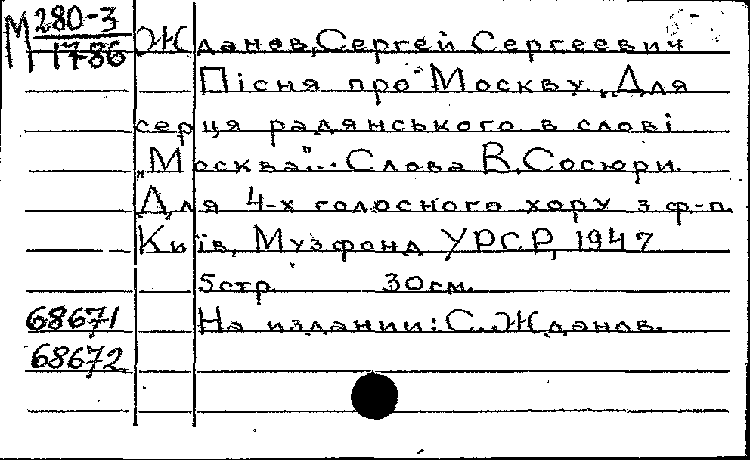 М 280-3
1786
Жданов, Сергей Сергеевич
Пісня про Москву. „Для
серця радянського в слові
„Москва"... Слова В. Сосюри.
Для 4-х голосного хору з ф-п.
Київ, Музфонд УРСР, 1947
5 стр. 30 см.
68671 На издании: С. Жданов.
68672